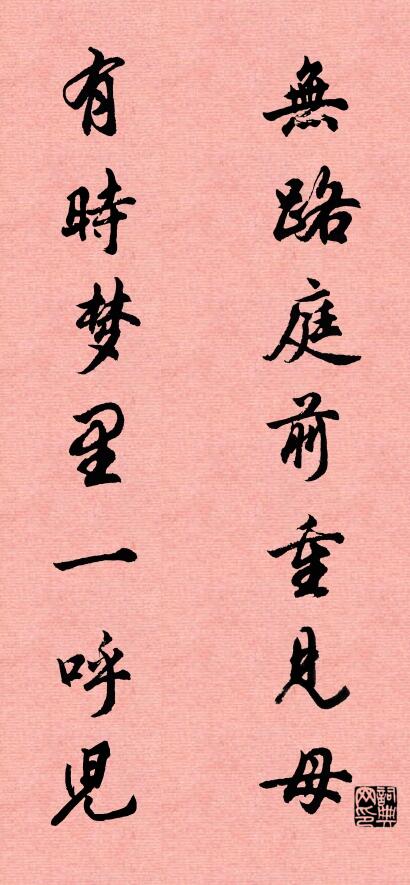 無路庭前重見母
有時梦里一呼兒
詞典网印